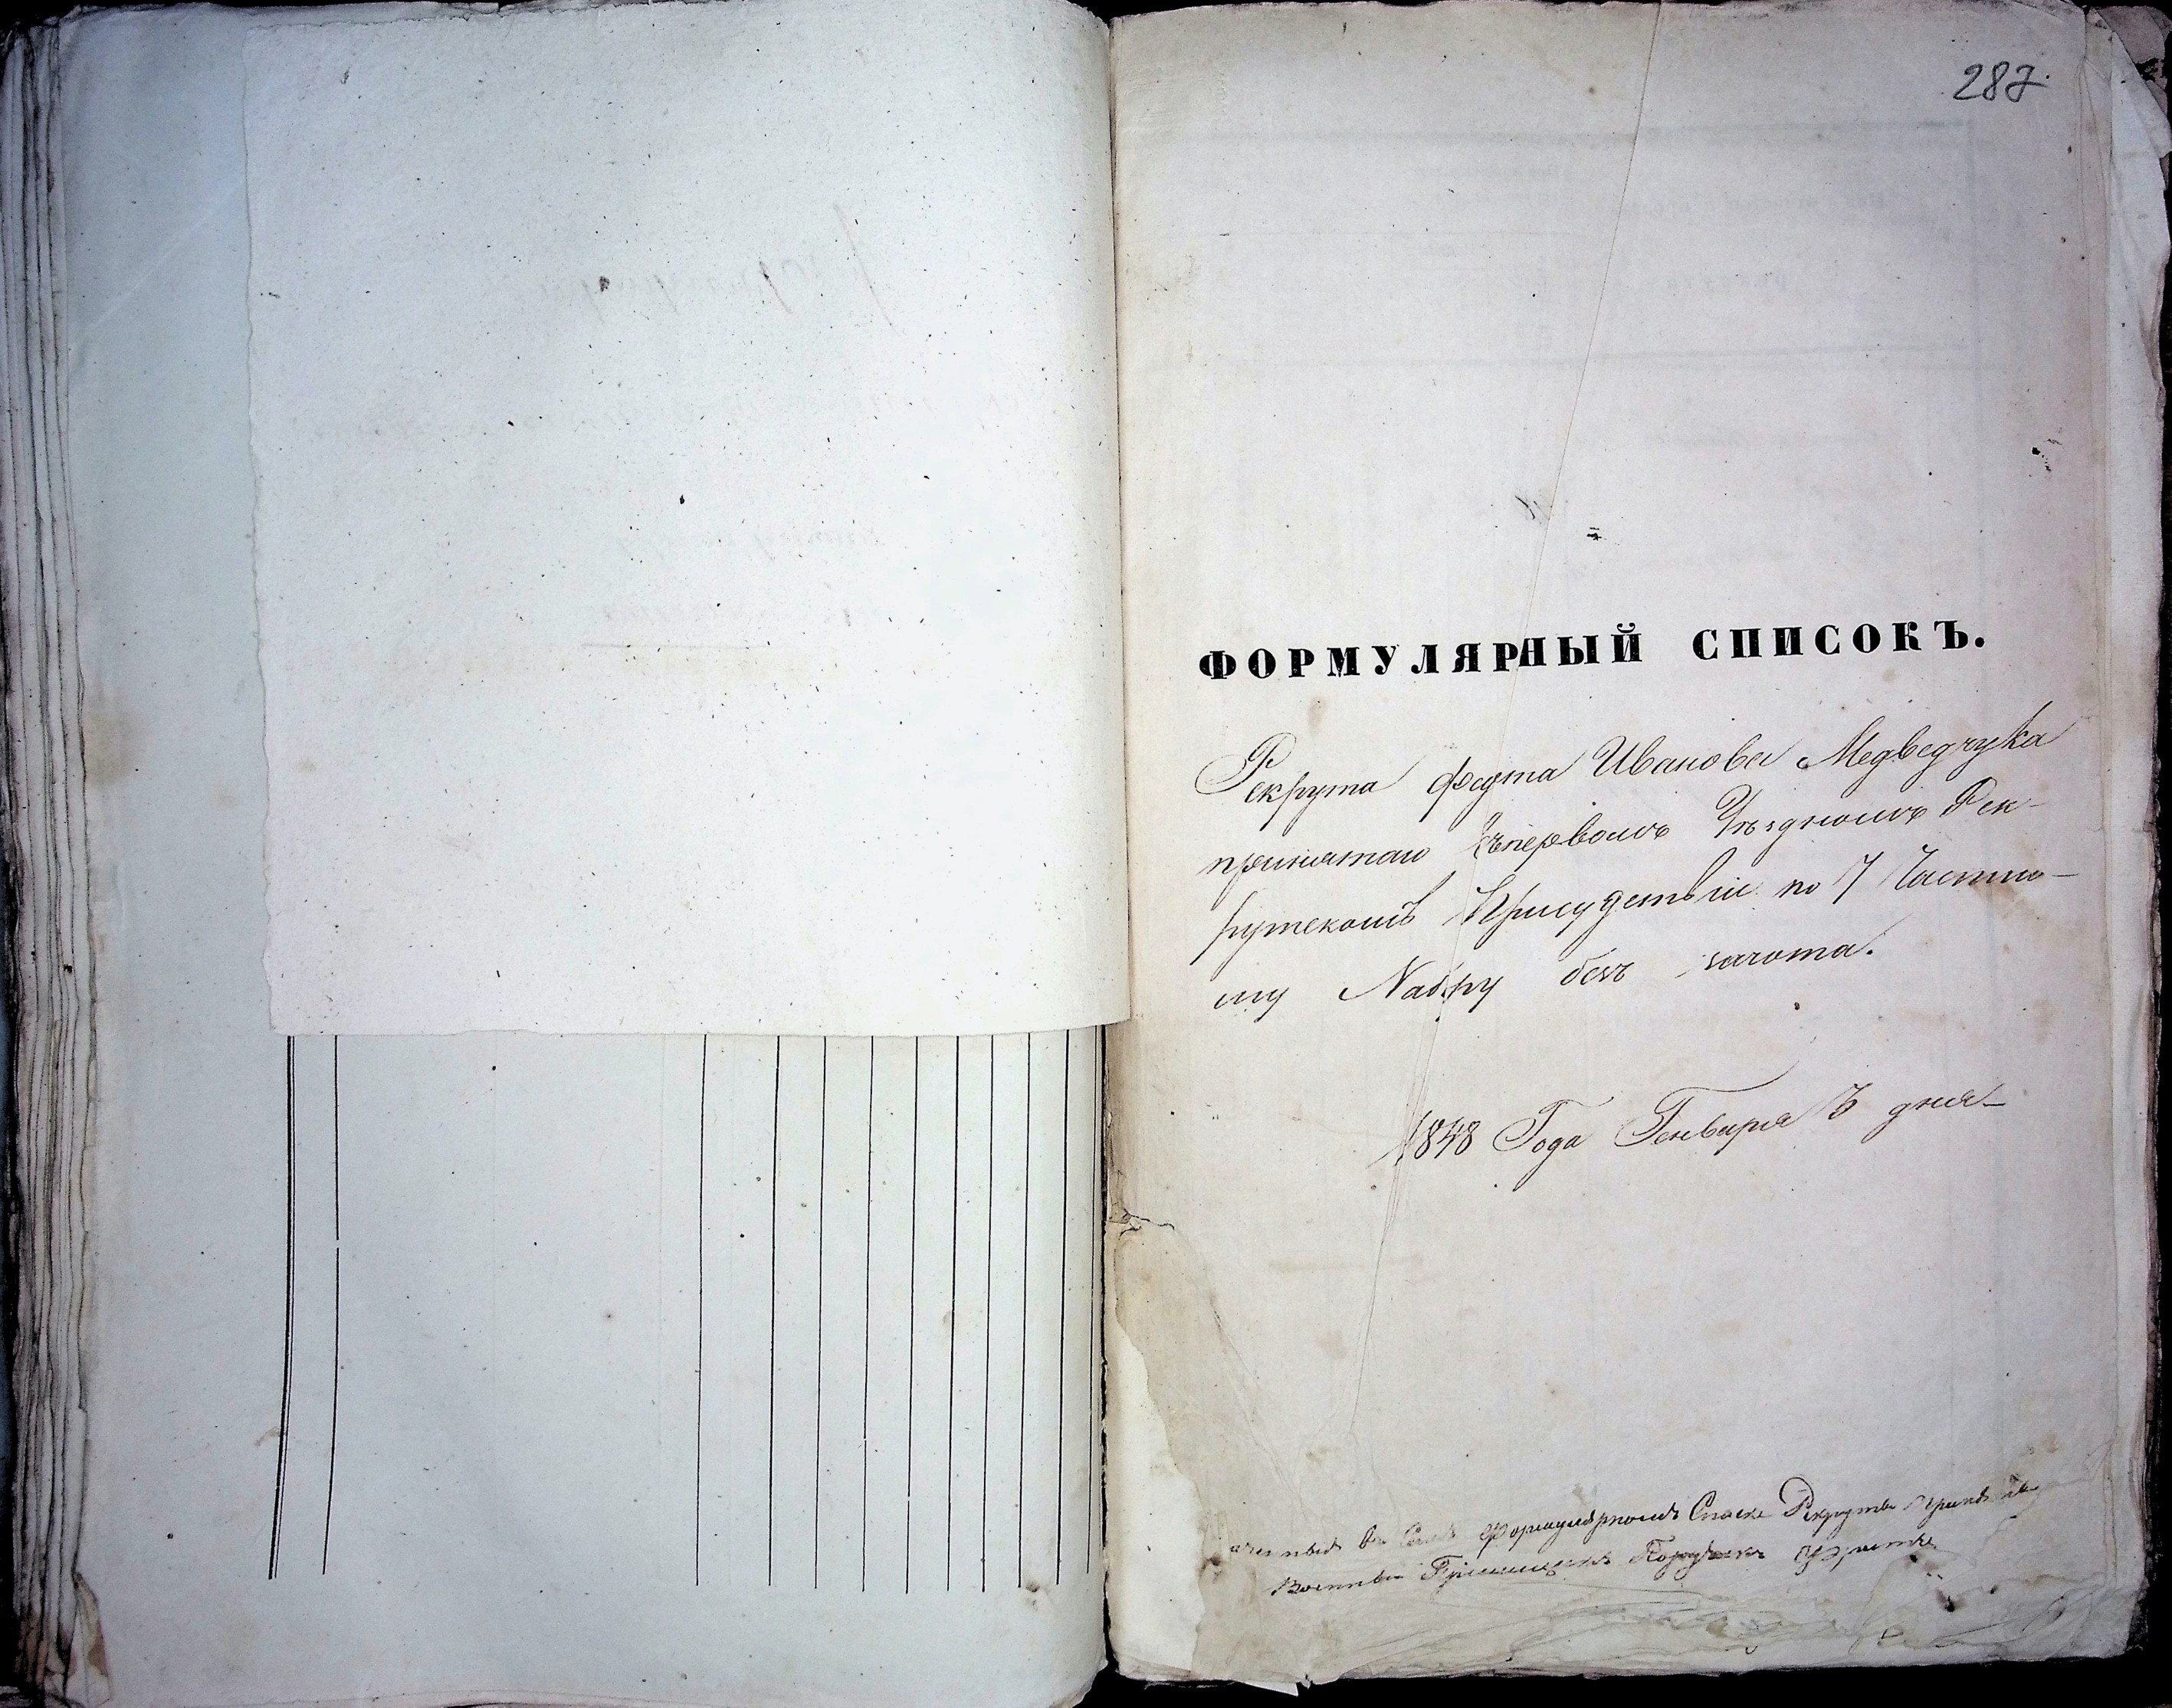 287.
ФОРМУЛЯРНЫЙ СПИСОКЪ.
Рекрута Федта Иванова Медведчука
принятаго въ первомъ Уѣздномъ Рек-
рутскомъ Присудствіи по 7 Частно-
му Набору безъ зачота.
1848 Года Генваря 5 дня
Формулярномъ Списке Рекрутъ принялъ
Военный Пріемщикъ Поручикъ